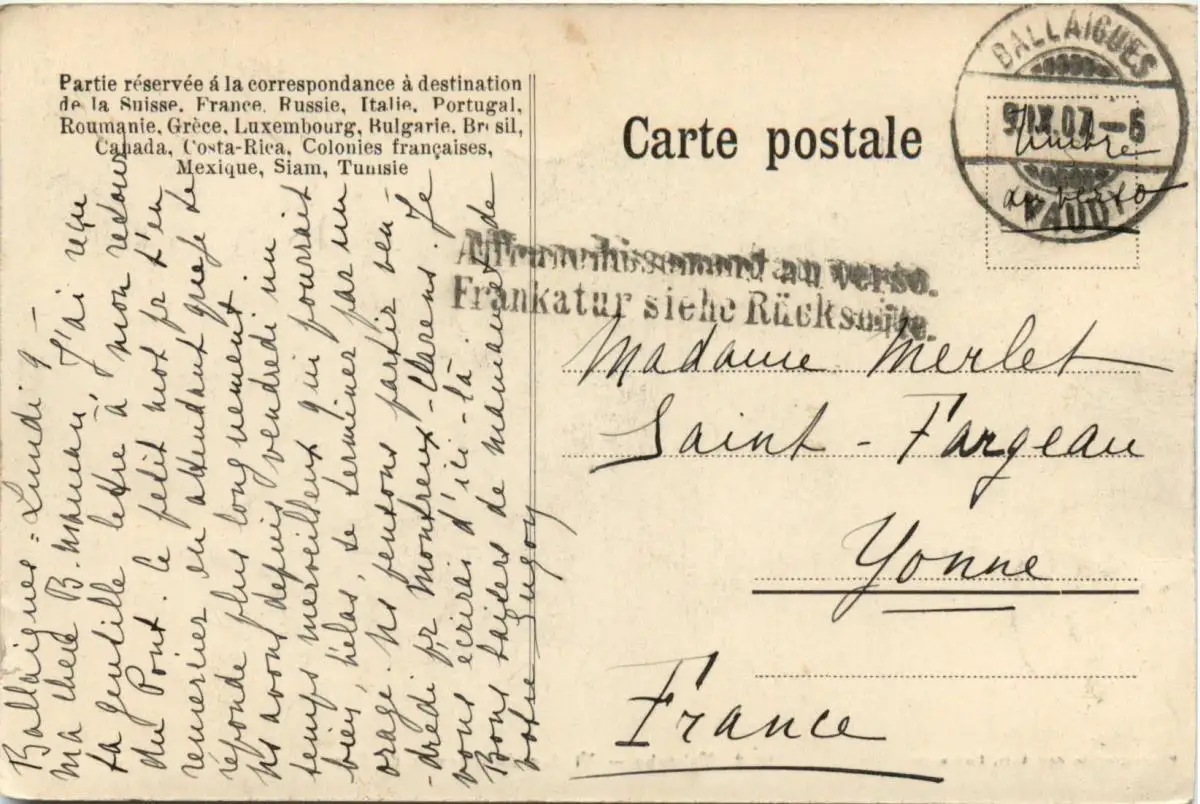 Partie réservée á la correspondance à destination
de la Suisse, France, Russie, Italie, Portugal,
Roumanie, Grèce, Luxembourg, Bulgarie, Brésil,
Canada, Costa-Rica, Colonies françaises,
Mexique, Siam, Tunisie
Carte postale
BALLAIGUES
9.IX.07-6
(VAUD)
Timbre
au verso
Affranchissement au verso.
Frankatur siehe Rückseite.
Madame Merlet
Saint-Fargeau
Yonne
France
Ballaigues - Lundi 9 -
ma chère B. maman, J'ai reçu
ta gentille lettre à mon retour
du Pont. Ce petit mot pr t'en
remercier en attendant que je te
réponde plus longuement.
Ns avons depuis vendredi un
temps merveilleux qui pourrait
bien, hélas, se terminer par un
orage. Ns pensons partir ven-
-dredi pr Montreux-Clarens. Je
vous écrirai d'ici-là.
Bons baisers de maman et de
votre